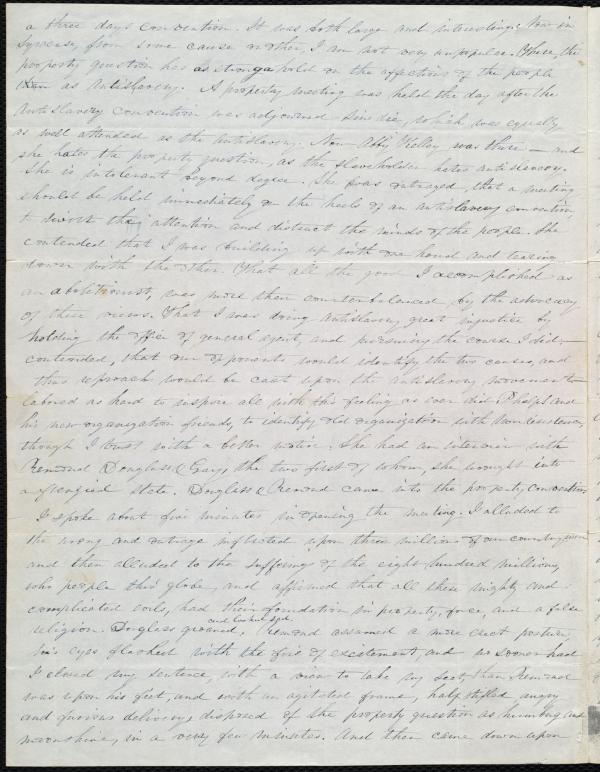 a three days convention. It was both large and interesting. Now in
Syracuse, from some cause or other, I am not very unpopular. There, the
property question has as strong a hold on the affections of the people
as Antislavery. A property meeting was held the day after the
Antislavery convention was adjourned sine die, which was equally
as well attended as the Antislavery. Now Abby Kelley was there — and
she hates the property question, as the slaveholder hates antislavery.
She is intolerant beyond degree. She was outraged, that a meeting
should be held immediately on the heels of an antislavery convention
to divert the attention and distract the minds of the people. She
contended that I was building up with one hand and tearing
down with the other. That all the good I accomplished as
an abolitionist, was more than counterbalanced by the advocacy
of these views. That I was doing antislavery great injustice by
holding the office of general agent, and pursuing the course I did,—
contended, that our opponents would identify the two causes, and
thus reproach would be cast upon the antislavery movement—
labored as hard to inspire all with this feeling as ever did Phelps and
his new organization friends, to identify old organization with non resistance,
though I trust with a better motive. She had an interview with
Remond Douglass & Gay, the two first of whom, she wrought into
a frenzied state. Douglass & Remond came into the property convention
I spoke about five minutes in opening the meeting. I alluded to
the wrong and outrage inflicted upon three millions of our countrymen
and then alluded to the suffering of the eight hundred millions
who people this globe, and affirmed that all these mighty and
complicated evils, had their foundation in property, force, and a false
religion. Douglass groaned, Remond assumed a more erect posture,
his eyes flashed with the fire of excitement, and no sooner had
I closed my sentence, with a view to take my seat, than Remond
was upon his feet, and with an agitated frame, half stifled angry
and furious delivery, disposed of the property question as humbug and
moonshine, in a very few minutes. And then came down upon